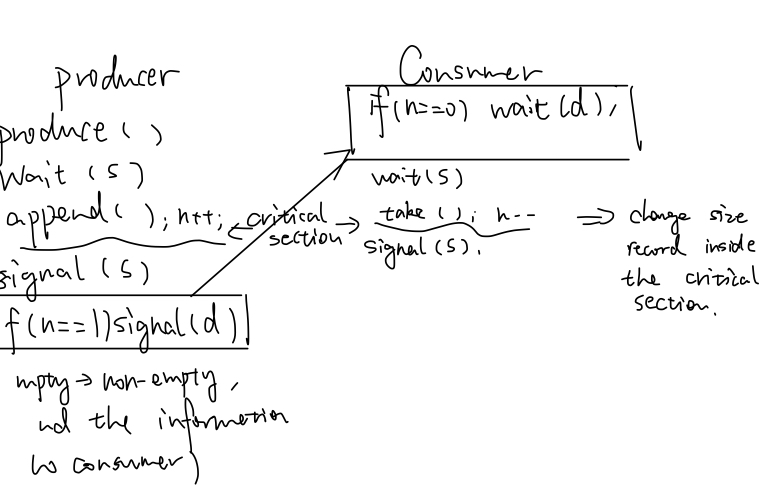 producer
produce ( )
wait (s)
append( ); n++;
signal (s)
f(n==1)signal(d)
mpty → non-empty,
nd the information
to consumer)
critical
section
Consumer
if(n==0) wait(d);
wait(s)
take ( ); n--
signal (s).
⇒ change size
record inside
the critical
section.